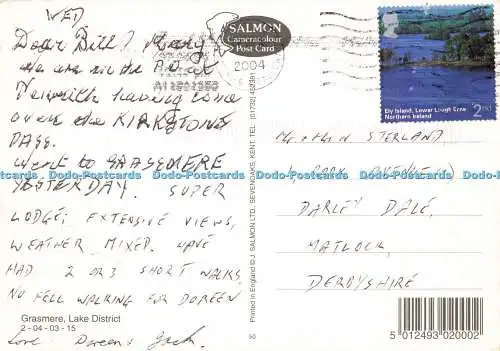 WED
Dear Bill & Mary
We are in the P.O. at
Penrith having come
over the KIRKSTONE
PASS.
Went to GRASSMERE
YESTERDAY. SUPER
LODGE, EXTENSIVE VIEWS,
WEATHER MIXED. HAVE
HAD 2 OR 3 SHORT WALKS,
NO FELL WALKING FOR DOREEN
Grasmere, Lake District
2 - 04 - 03 - 15
Love Doreen & Jack.
SALMON
Cameracolour
Post Card
2004
Printed in England © J. SALMON LTD., SEVENOAKS, KENT. TEL: (01732) 452381
50
Ely Island, Lower Lough Erne
Northern Ireland
2nd
Mr & Mrs W STERLAND
PARK
DARLEY DALE,
MATLOCK,
DERBYSHIRE
5 012493 020002
Dado-Postcards Dado-Postcards Dado-Postcards Dado-Postcards